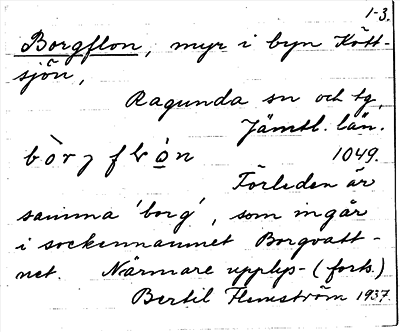 1-3.
Borgflon, myr i byn Kött-
sjön,
Ragunda sn och tg,
Jämtl. län.
bòrgflón 1049.
Förleden är
samma 'borg', som ingår
i sockennamnet Borgvatt-
net. Närmare upplys- (forts.)
Bertil Flemström 1937.